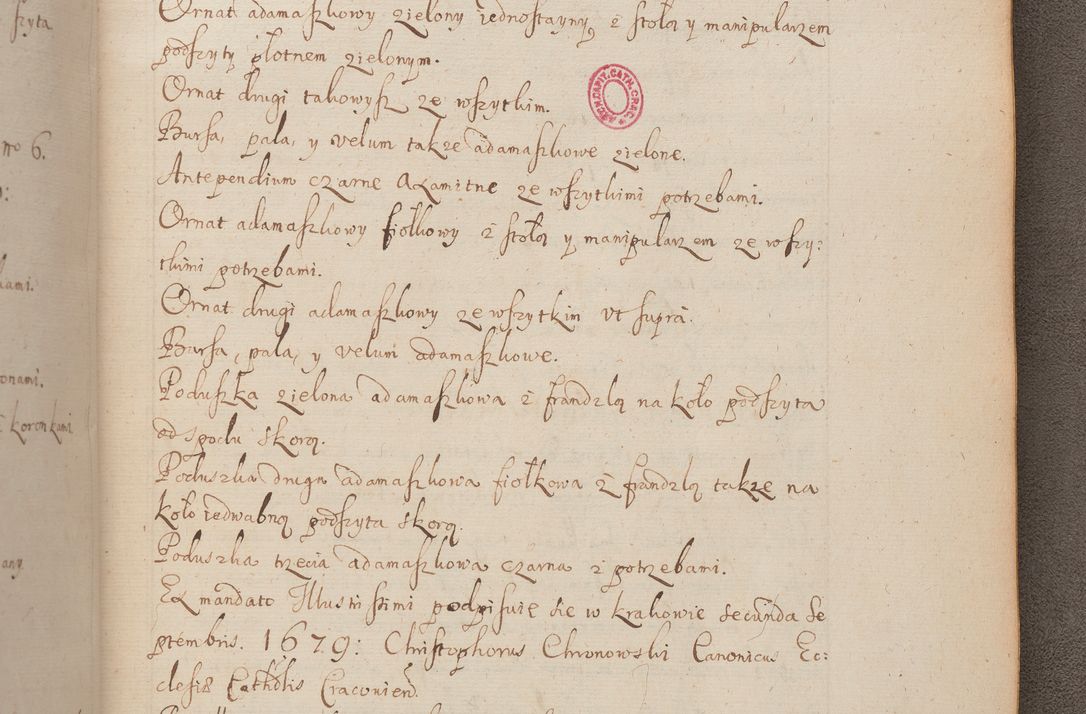 szyta
Ornat adamaszkowy zielony iednostayny, z stołą y manipularzem
podszyty płotnem zielonym.
Ornat drugi takowysz ze wszytkim.
Bursa, pala, y velum także adamaszkowe zielone.
Antependium czarne Axamitne ze wszytkimi potrzebami.
Ornat adamaszkowy fiołkowy z stołą y manipularzem ze wszy:
tkimi potrzebami.
Ornat drugi adamaszkowy ze wszytkim vt supra.
Bursa, pala, y velum adamaszkowe.
Poduszka zielona adamaszkowa z frandzlą na koło podszyta
od spodu skorą.
Poduszka druga adamaszkowa fiołkowa z frandzlą także na
koło iedwabną podszyta skorą.
Poduszka trzecia adamaszkowa czarna z potrzebami.
Ex mandato Illustrissimi podpisuię się w Krakowie secunda Se
ptembris. 1679: Christophorus Chronowski Canonicus Ec:
clesiæ Cathdlis Cracovien.
no 6.
kami.
onami.
z koronkami
any
ARCH. CAPIT. CATH. CRAC.